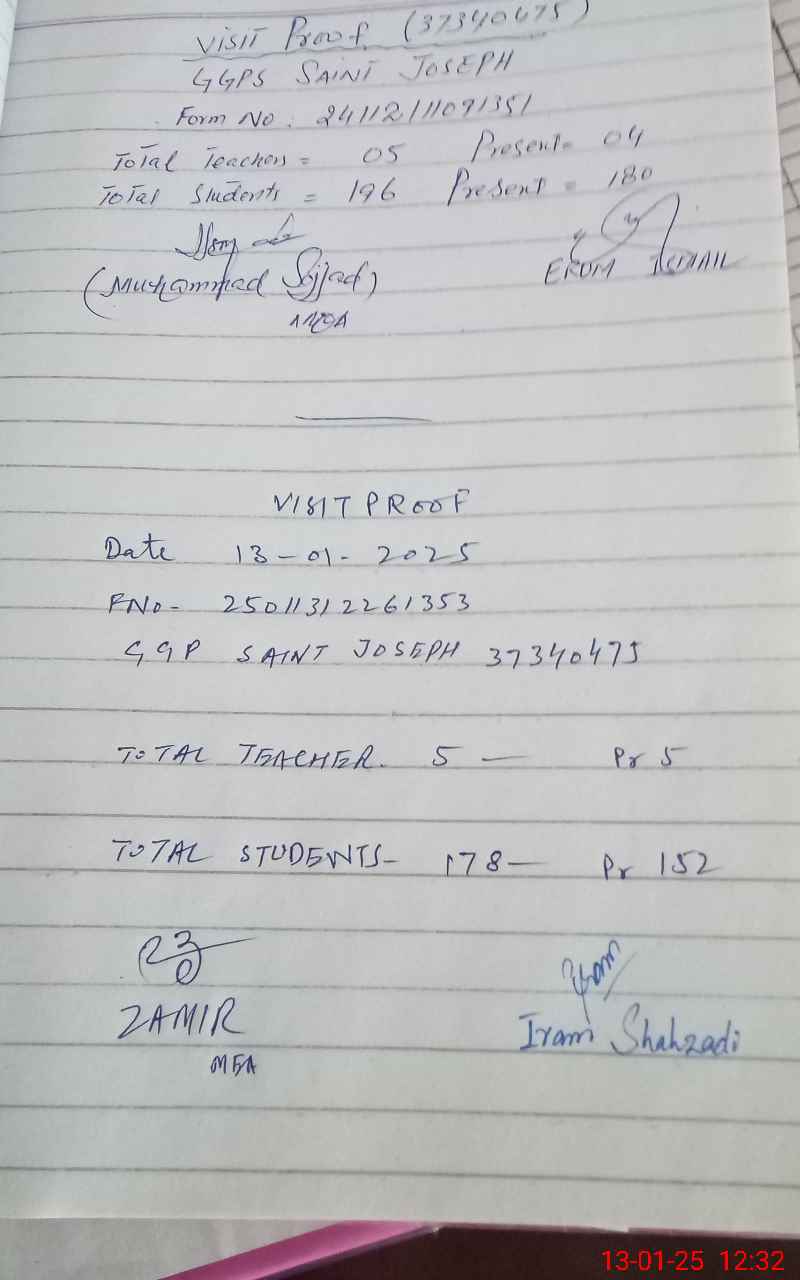 VISIT Proof (37340475)
GGPS SAINT JOSEPH
Form No. 24112111091351
Total Teachers = 05 Present = 04
Total Students = 196 Present = 180
(Muhammad Sajjad) ERUM ISMAIL
VISIT PROOF
Date 13-01-2025
FNo- 25011312261353
GGP SAINT JOSEPH 37340475
TOTAL TEACHER. 5 — Pr 5
TOTAL STUDENTS- 178 — Pr 152
Iram
ZAMIR Iram Shahzadi
MEA
13-01-25 12:32